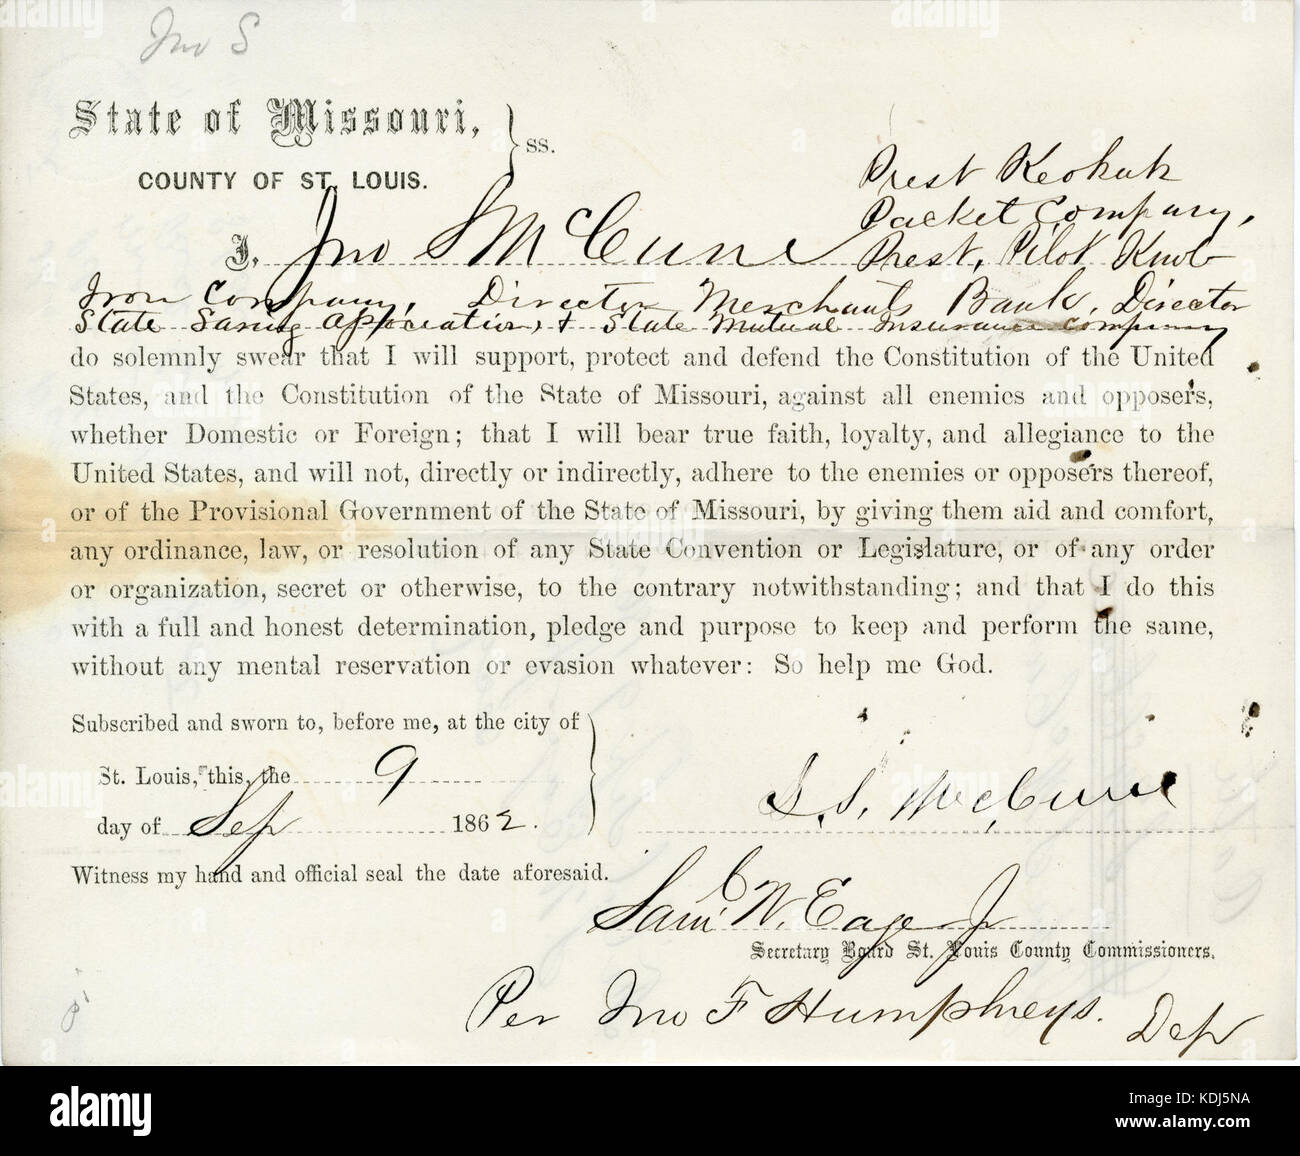 Jno S
State of Missouri, } ss.
COUNTY OF ST. LOUIS.
I, Jno S McCune Prest Keokuk
Packet Company,
Prest, Pilot Knob
Iron Company, Director Merchants Bank, Director
State Saving Association, & State Mutual Insurance Company
do solemnly swear that I will support, protect and defend the Constitution of the United
States, and the Constitution of the State of Missouri, against all enemies and opposers,
whether Domestic or Foreign; that I will bear true faith, loyalty, and allegiance to the
United States, and will not, directly or indirectly, adhere to the enemies or opposers thereof,
or of the Provisional Government of the State of Missouri, by giving them aid and comfort,
any ordinance, law, or resolution of any State Convention or Legislature, or of any order
or organization, secret or otherwise, to the contrary notwithstanding; and that I do this
with a full and honest determination, pledge and purpose to keep and perform the same,
without any mental reservation or evasion whatever: So help me God.
Subscribed and sworn to, before me, at the city of
St. Louis, this, the 9
day of Sep 1862.
J. S. McCune
Witness my hand and official seal the date aforesaid.
Saml. W. Eager Jr
Secretary Board St. Louis County Commissioners.
Per Jno F Humphreys. Dep
alamy
Image ID: KDJ5NA
www.alamy.com